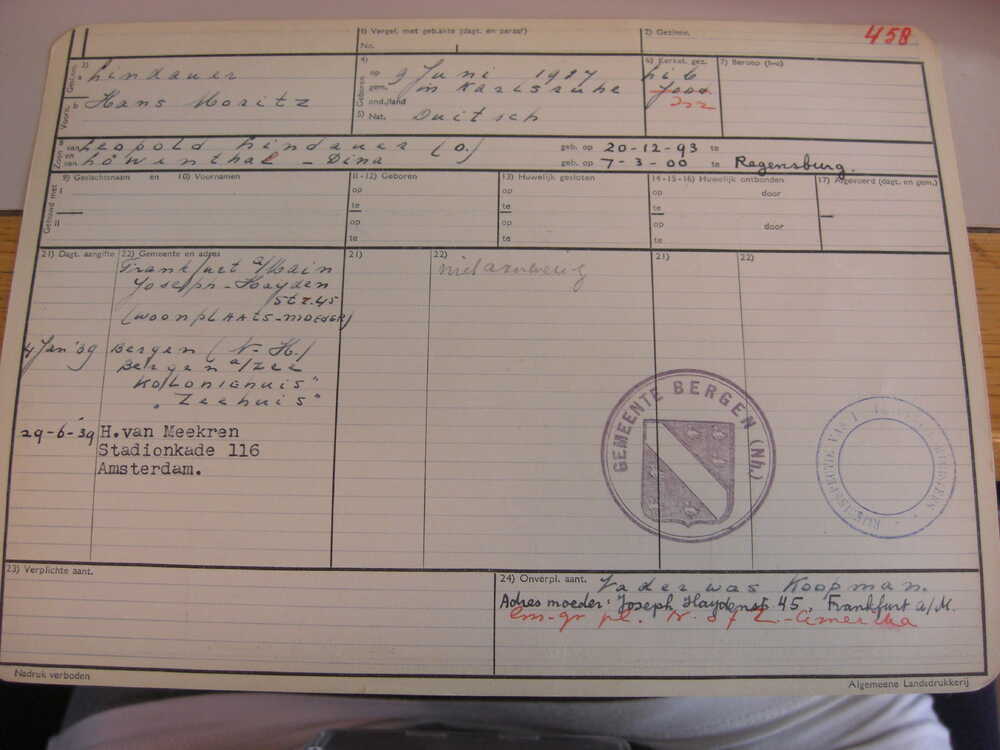 1) Vergel. met geb.akte (dagt. en paraaf)
No.
2) Gezinsr.
458
Geslsn. 3) a Lindauer
Voorn. b Hans Moritz
4) Geboren op 9 Juni 1927
gem. in Karlsruhe
ond./land
5) Nat. Duitsch
6) Kerkel. gez.
Lib
Jood
Isr
7) Beroep (h-o)
Zoon a van Leopold Lindauer (O.) geb. op 20-12-93 te
en van Löwenthal - Dina geb. op 7-3-00 te Regensburg.
Gehuwd met
9) Geslachtsnaam en 10) Voornamen
11-12) Geboren
13) Huwelijk gesloten
14-15-16) Huwelijk ontbonden
17) Afgevoerd (dagt. en gem.)
I op op op door
te te te
II op op op door
te te te
21) Dagt. aangifte 22) Gemeente en adres 21) 22) 21) 22)
Frankfurt a/Main
Joseph-Hayden
Str. 45
(woonplaats-moeder)
niet aanwezig
4 Jan '39 Bergen (N-H.)
Bergen a/zee
Koloniehuis"
"Zeehuis"
29-6-39 H.van Meekren
Stadionkade 116
Amsterdam.
GEMEENTE BERGEN (Nh.)
RIJKSINSPECTIE VAN
23) Verplichte aant.
24) Onverpl. aant. Vader was Koopman.
Adres moeder: Joseph Haydenstr. 45, Frankfurt a/M.
em-gr pl. N. of Z.-Amerika
Nadruk verboden
Algemeene Landsdrukkerij